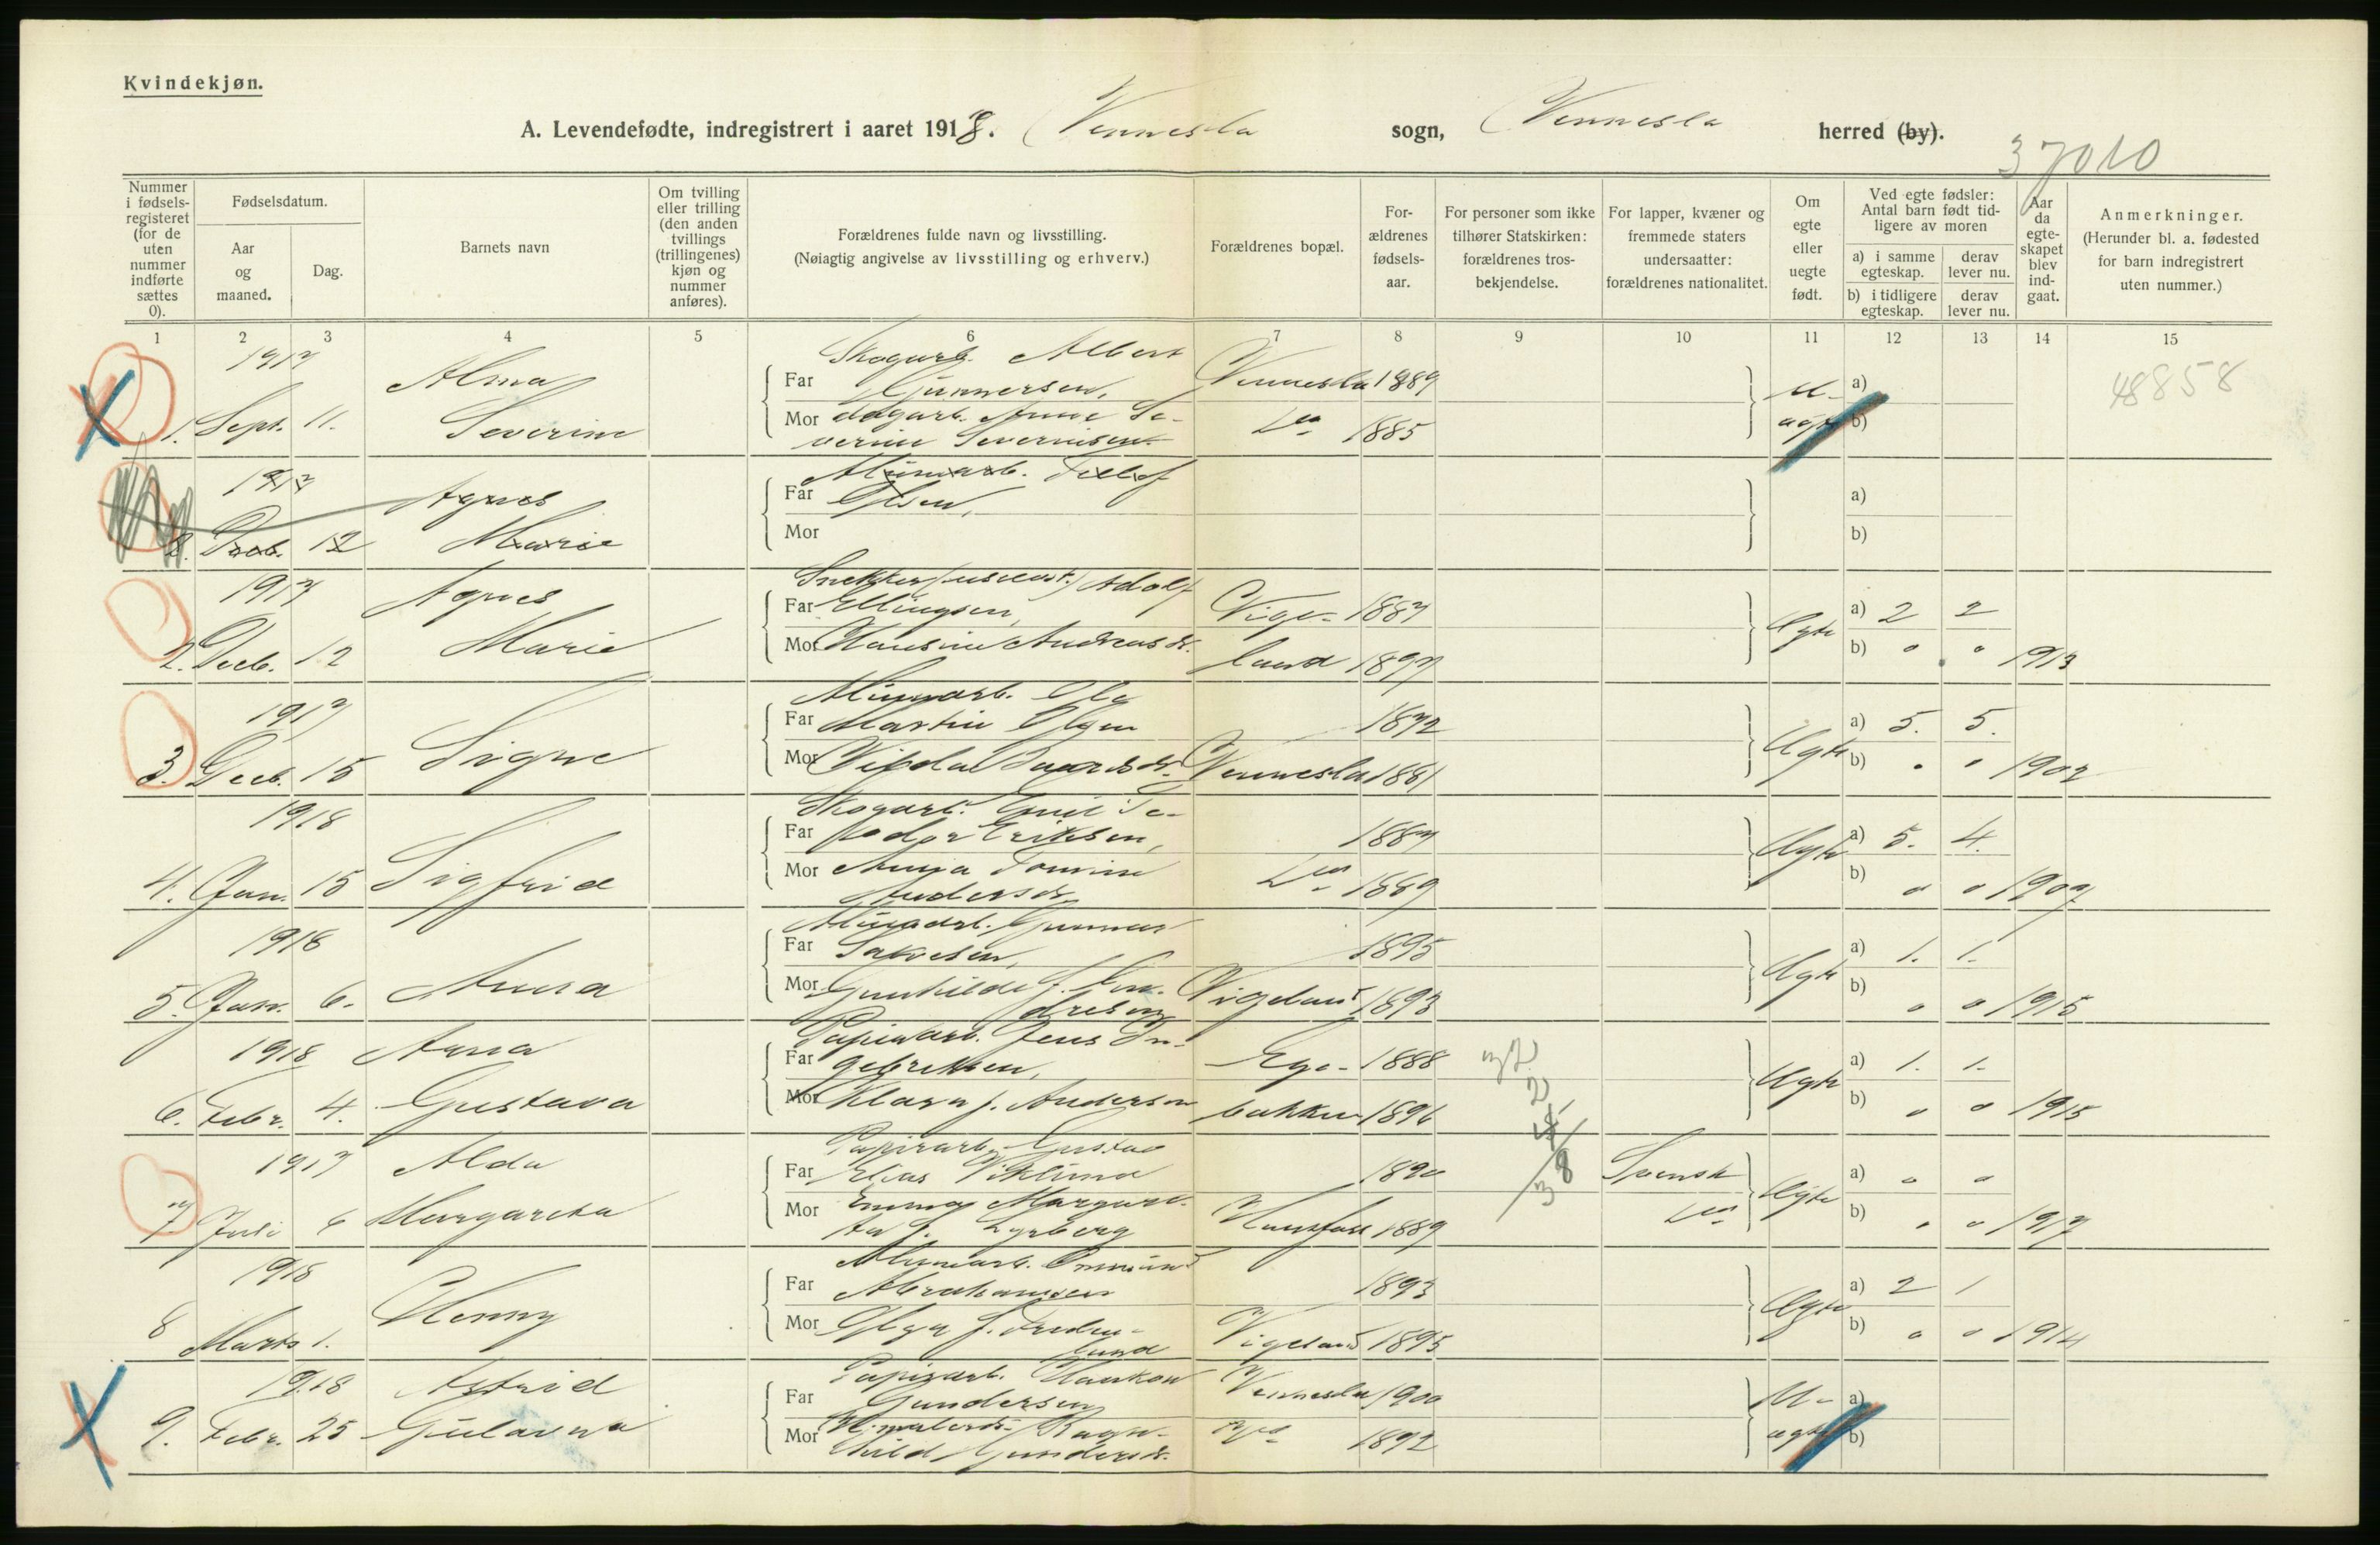 Kvindekjøn.
A. Levendefødte, indregistrert i aaret 1918. Vennesla sogn, Vennesla herred (by).
37010
Nummer i fødsels-registeret (for de uten nummer indførte sættes 0).
Fødselsdatum.
Aar og maaned.
Dag.
Barnets navn
Om tvilling eller trilling (den anden tvillings (trillingenes) kjøn og nummer anføres).
Forældrenes fulde navn og livsstilling.
(Nøiagtig angivelse av livsstilling og erhverv.)
Forældrenes bopæl.
For-ældrenes fødsels-aar.
For personer som ikke tilhører Statskirken: forældrenes tros-bekjendelse.
For lapper, kvæner og fremmede staters undersaatter: forældrenes nationalitet.
Om egte eller uegte født.
Ved egte fødsler: Antal barn født tid-ligere av moren
a) i samme egteskap.
derav lever nu.
b) i tidligere egteskap.
derav lever nu.
Aar da egte-skapet blev ind-gaat.
Anmerkninger.
(Herunder bl. a. fødested for barn indregistrert uten nummer.)
1 2 3 4 5 6 7 8 9 10 11 12 13 14 15
1917 Alma Skogarb. Albert
Far Gunnersen, Vennesla 1889 U- a) 48858
1. Sept. 11. Severine Mor Anne Se-
verine Severinsen Do 1885 ægte b)
1917 Agnes
Far Olsen, a)
2. Decb. 12 Marie Mor b)
1917 Agnes Adolf
Far Ellingsen, Vige- 1887 Ægte a) 2 2
2. Decb. 12 Marie Mor Hansine Andreasdr. land 1897 b) " " 1913
1917 Ole
Far Martin Olsen 1872 a) 5. 5.
3. Decb. 15 Signe Mor Vennesla 1881 Ægte b) " " 1902
1918 Skogarb. Emil Te-
Far odor Eriksen, 1887 Ægte a) 5. 4.
4. Jan. 15 Sigfrid Mor Anna Tomine
Andersdr. Do 1889 b) " " 1909
1918 Gunnar
Far Salvesen, 1895 Ægte a) 1. 1.
5. Jan. 6. Anna Mor Gunhilde f. An-
dresen Vigeland 1893 b) " " 1915
1918 Anna Papirarb. Jens In-
Far gebretsen, Ege- 1888 Ægte a) 1. 1.
6. Febr. 4. Gustava Mor Klara f. Andersen bakken 1896 b) " " 1915
37
2
38
1917 Alda Papirarb. Gustav
Far Elias Viklund 1890 Svensk Ægte a) " "
7 Juli 6 Margareta Mor Emma Margare-
ta f. Hunsfoss 1889 Do b) " " 1917
1918
Far Abrahamsen 1893 Ægte a) 2 1
8 Marts 1. Henny Mor Olga f.
lund Vigeland 1895 b) " " 1914
1918 Astrid Papirarb. Haakon
Far Gundersen Vennesla 1900 U- a)
9. Febr. 25 Mor Ragn-
hild Gundersdr. Do 1892 ægte b)